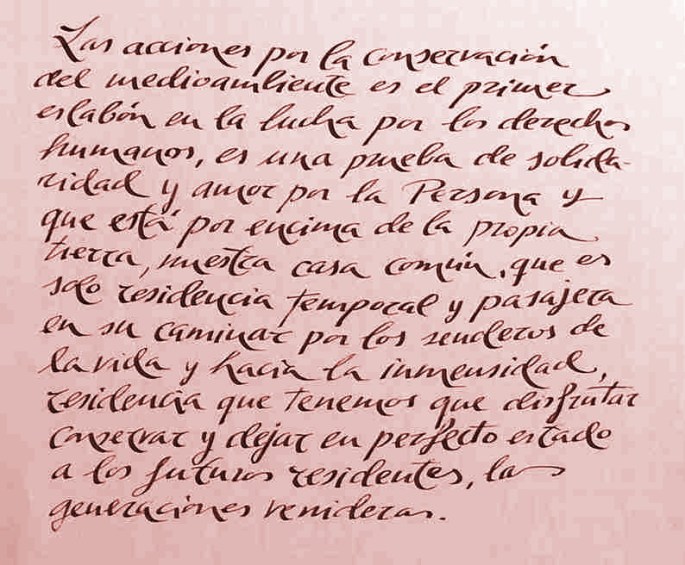 Las acciones por la conservación
del medioambiente es el primer
eslabón en la lucha por los derechos
humanos, es una prueba de solida-
ridad y amor por la Persona y
que está por encima de la propia
tierra, nuestra casa común, que es
solo residencia temporal y pasajera
en su caminar por los senderos de
la vida y hacia la inmensidad,
residencia que tenemos que disfrutar
conservar y dejar en perfecto estado
a los futuros residentes, las
generaciones venideras.